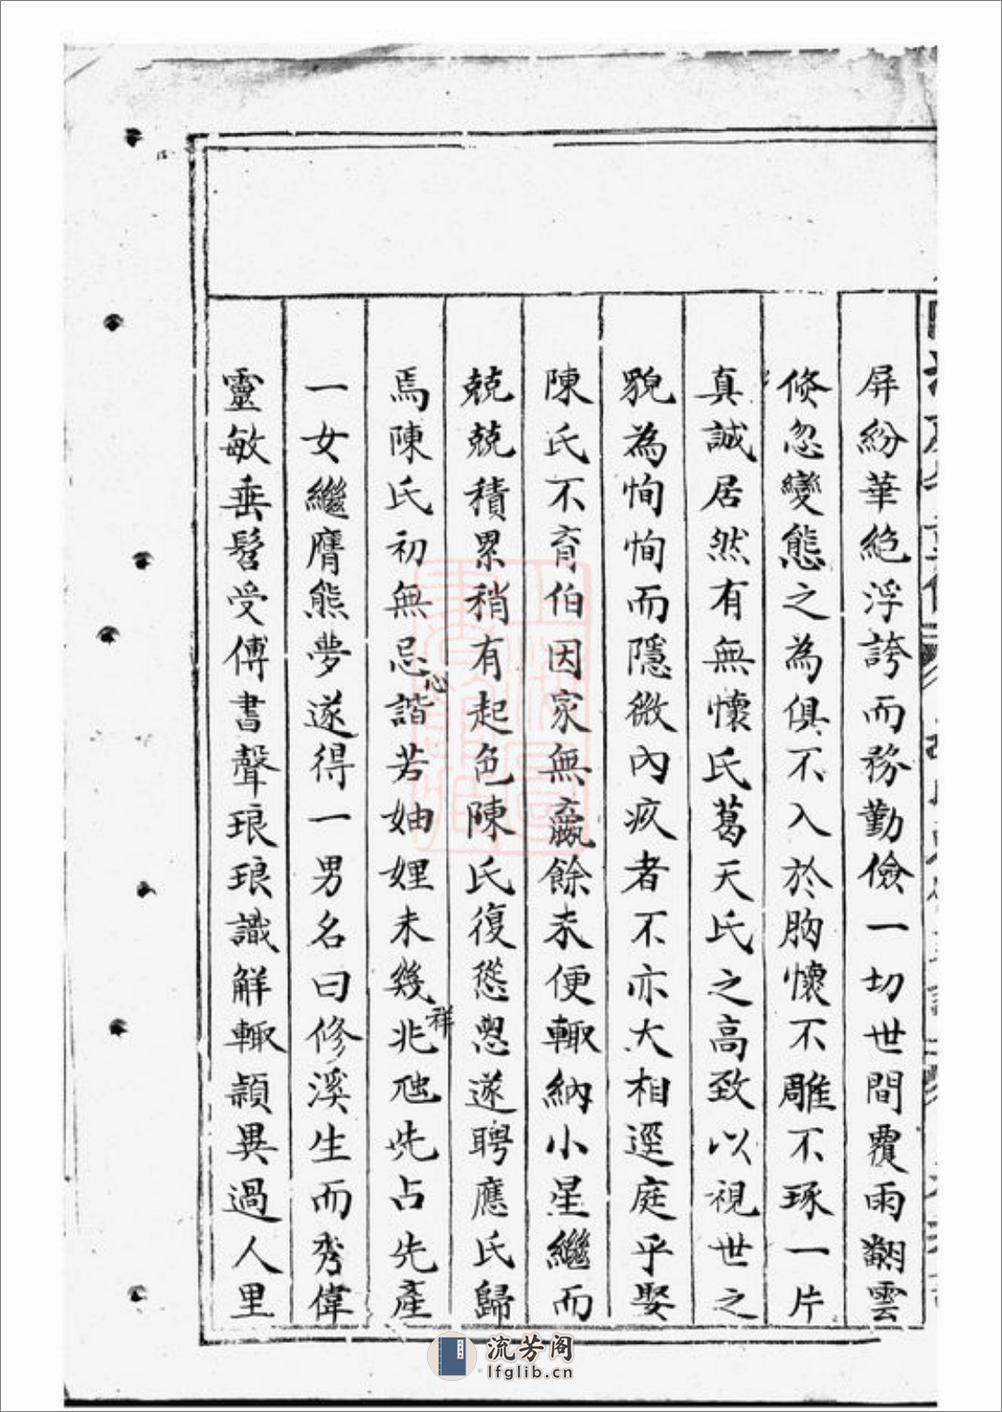 屏紛華絶浮誇而務勤儉一切世間覆雨翻雲
倐忽變態之為俱不入於胸懷不雕不琢一片
真誠居然有無懷氏葛天氏之高致以視世之
貌為恂恂而隱微內疚者不亦大相逕庭乎娶
陳氏不育伯因家無贏餘未便輙納小星繼而
兢兢積累稍有起色陳氏復慫恿遂聘應氏歸
焉陳氏初無忌心諧若妯娌未幾兆祥虺先占先產
一女繼膺熊夢遂得一男名曰修溪生而秀偉
靈敏垂髫受傅書聲琅琅識解輙穎異過人里
流芳阁
lfglib.cn